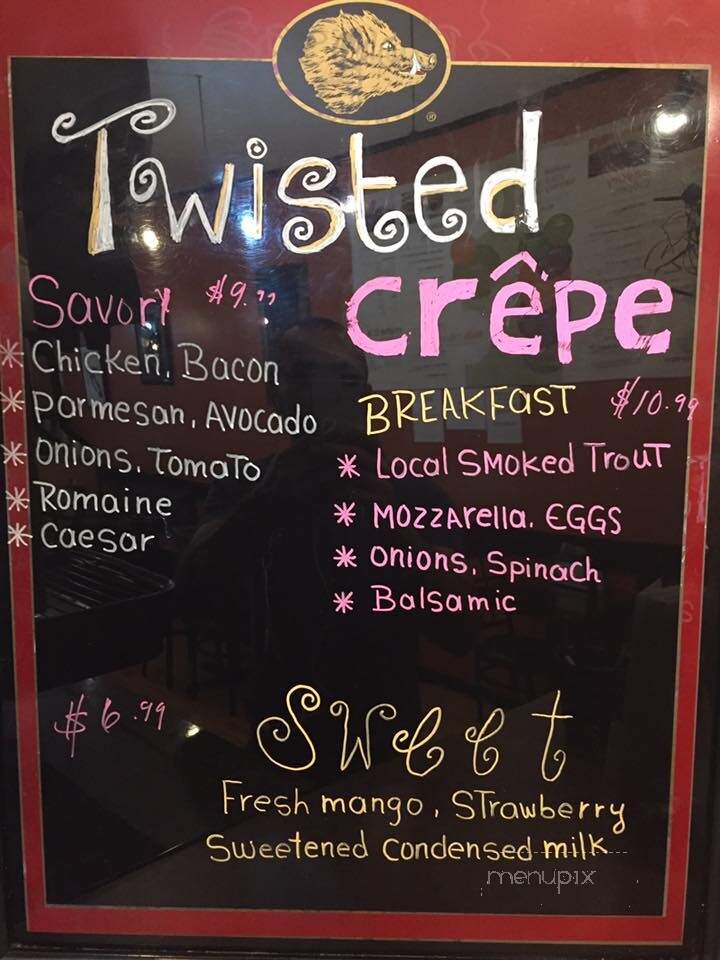 Twisted
crêpe
Savory $9.99
* Chicken, Bacon
* Parmesan, Avocado
* Onions, Tomato
* Romaine
* Caesar
BREAKFAST $10.99
* Local Smoked Trout
* Mozzarella, EGGS
* Onions, Spinach
* Balsamic
$6.99
Sweet
Fresh mango, Strawberry
Sweetened Condensed milk
menupix